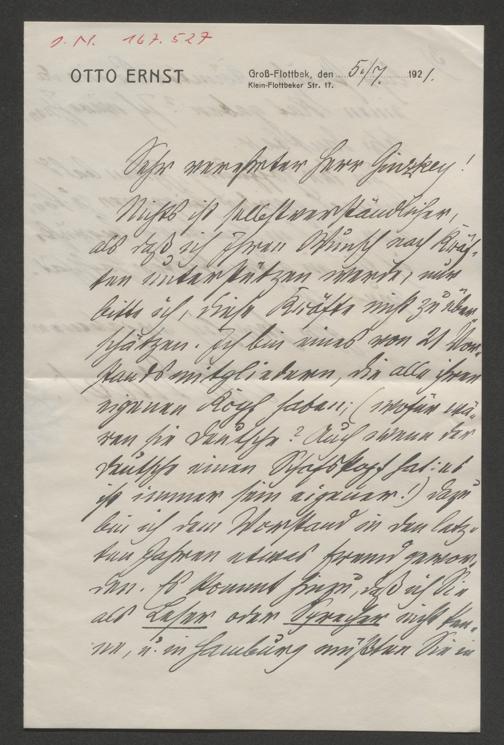 J. N. 167.527
OTTO ERNST
Groß-Flottbek, den 5./7. 1921.
Klein-Flottbeker Str. 17.
Sehr verehrter Herr Ginzkey!
Nichts ist selbstverständlicher,
als daß ich Ihren Wunsch nach Kräf-
ten unterstützen werde, nur
bitte ich, diese Kräfte nicht zu über-
schätzen. Ich bin eines von 21 Vor-
standsmitgliedern, die alle ihren
eigenen Kopf haben; (wofür wä-
ren sie Deutsche? Auch wenn der
Deutsche einen Schafskopf hat: es
ist immer sein eigener.) Dazu
bin ich dem Vorstand in den letz-
ten Jahren etwas fremd gewor-
den. Es kommt hinzu, daß ich Sie
als Leser oder Sprecher nicht ken-
ne, u. in Hamburg müßten Sie in